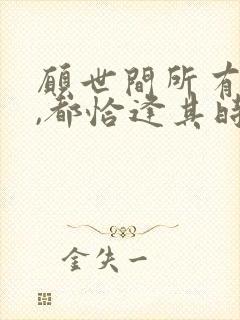 願世間所有
,都恰逢其時
金失一